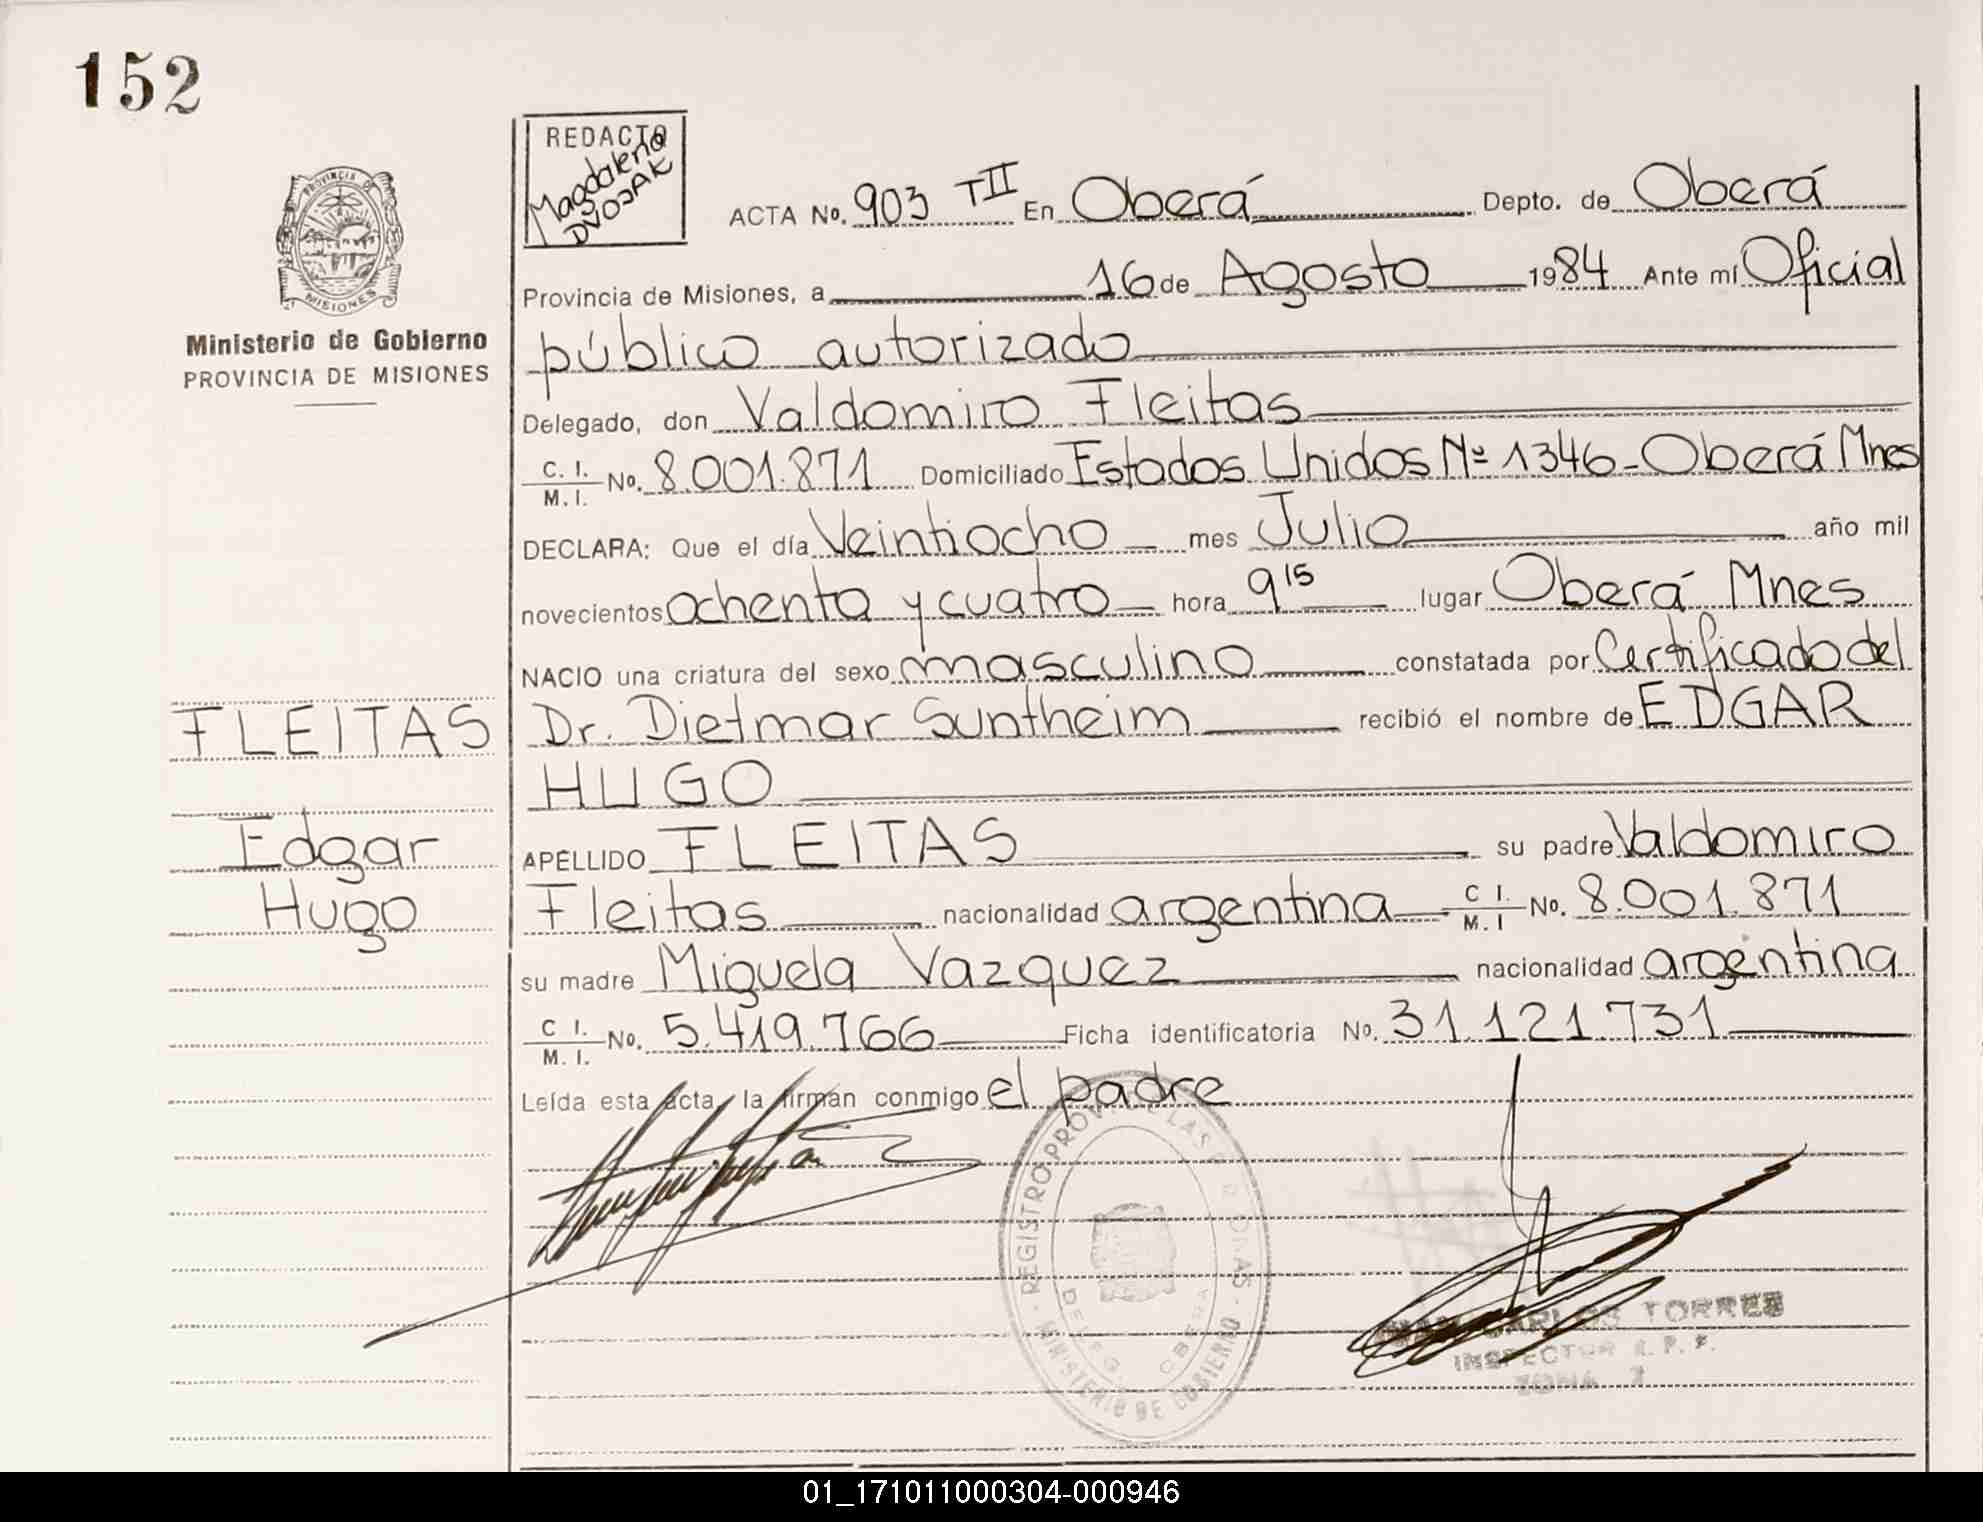 152
REDACTO
Magdalena
DVOJAK
ACTA No. 903 TII En Oberá Depto. de Oberá
Provincia de Misiones, a 16 de Agosto 1984 Ante mí Oficial
público autorizado
Delegado, don Valdomiro Fleitas
C. I. M. I. No. 8.001.871 Domiciliado Estados Unidos Nº 1346-Oberá Mnes
DECLARA: Que el día Veintiocho mes Julio año mil
novecientos ochenta y cuatro hora 9 15 lugar Oberá Mnes
NACIO una criatura del sexo masculino constatada por Certificado del
Dr. Dietmar Suntheim recibió el nombre de EDGAR
HUGO
APELLIDO FLEITAS su padre Valdomiro
Fleitas nacionalidad argentina C I. M. I No. 8.001.871
su madre Miguela Vazquez nacionalidad argentina
C I. M. I. No. 5.419.766 Ficha identificatoria No. 31.121.731
Leída esta acta, la firman conmigo el padre
PROVINCIA DE
MISIONES
Ministerio de Gobierno
PROVINCIA DE MISIONES
FLEITAS
Edgar
Hugo
REGISTRO PROV. DE LAS PERSONAS
MINISTERIO DE GOBIERNO
DELEG. OBERA
JUAN CARLOS TORRES
INSPECTOR R. P. P.
ZONA
01_171011000304-000946